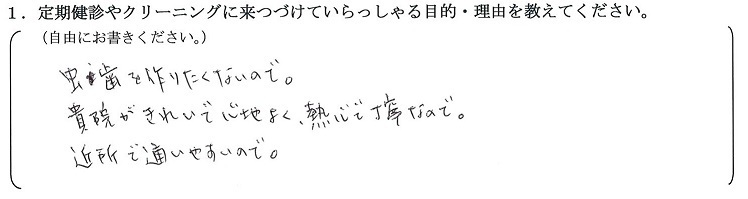 1．定期健診やクリーニングに来つづけていらっしゃる目的・理由を教えてください。
（自由にお書きください。）
虫歯を作りたくないので。
貴院がきれいで心地よく、熱心で丁寧なので。
近所で通いやすいので。